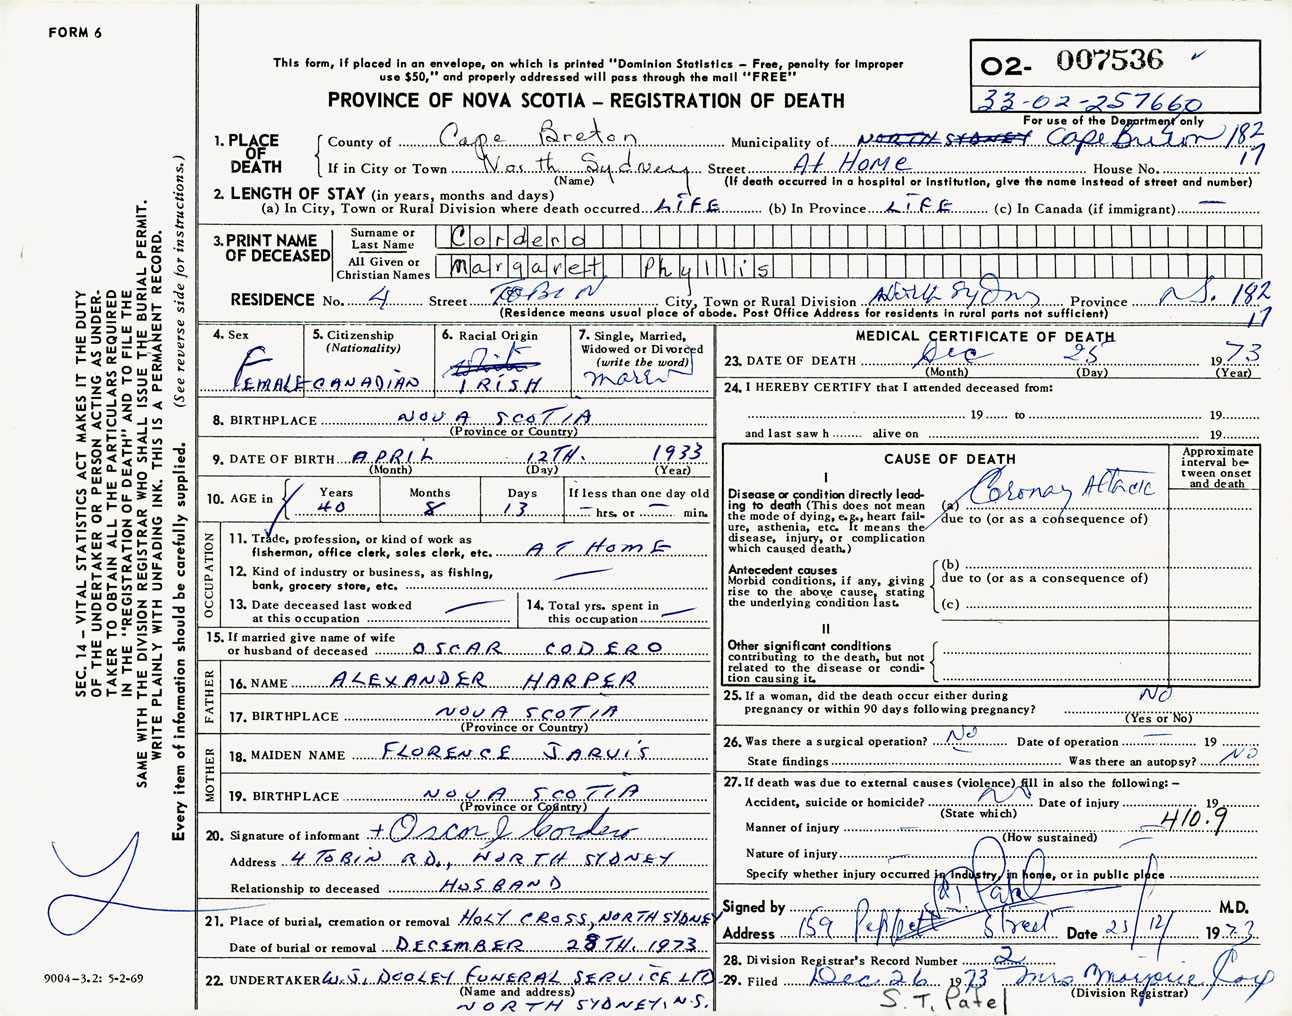 FORM 6
This form, if placed in an envelope, on which is printed "Dominion Statistics – Free, penalty for improper
use $50," and properly addressed will pass through the mail "FREE"
PROVINCE OF NOVA SCOTIA – REGISTRATION OF DEATH
02- 007536
33-02-257660
For use of the Department only
1. PLACE OF DEATH
County of Cape Breton Municipality of NORTH SYDNEY Cape Breton 182
If in City or Town North Sydney Street At Home House No. 17
(Name) (If death occurred in a hospital or institution, give the name instead of street and number)
2. LENGTH OF STAY (in years, months and days)
(a) In City, Town or Rural Division where death occurred LIFE (b) In Province LIFE (c) In Canada (if immigrant) —
3. PRINT NAME OF DECEASED
Surname or Last Name Cordero
All Given or Christian Names Margaret Phyllis
RESIDENCE No. 4 Street TOBIN City, Town or Rural Division North Sydney Province N.S. 182
(Residence means usual place of abode. Post Office Address for residents in rural parts not sufficient) 17
4. Sex F FEMALE
5. Citizenship (Nationality) CANADIAN
6. Racial Origin IRISH
7. Single, Married, Widowed or Divorced (write the word) Married
8. BIRTHPLACE NOVA SCOTIA
(Province or Country)
9. DATE OF BIRTH APRIL 12TH. 1933
(Month) (Day) (Year)
10. AGE in Years 40 Months 8 Days 13 If less than one day old — hrs. or — min.
OCCUPATION
11. Trade, profession, or kind of work as
fisherman, office clerk, sales clerk, etc. AT HOME
12. Kind of industry or business, as fishing,
bank, grocery store, etc. —
13. Date deceased last worked
at this occupation —
14. Total yrs. spent in
this occupation —
15. If married give name of wife
or husband of deceased OSCAR CODERO
FATHER
16. NAME ALEXANDER HARPER
17. BIRTHPLACE NOVA SCOTIA
(Province or Country)
MOTHER
18. MAIDEN NAME FLORENCE JARVIS
19. BIRTHPLACE NOVA SCOTIA
(Province or Country)
20. Signature of informant + Oscar J Cordero
Address 4 TOBIN RD., NORTH SYDNEY
Relationship to deceased HUSBAND
21. Place of burial, cremation or removal HOLY CROSS, NORTH SYDNEY
Date of burial or removal DECEMBER 28TH. 1973
22. UNDERTAKER W.J. DOOLEY FUNERAL SERVICE LTD
(Name and address)
NORTH SYDNEY, N.S.
MEDICAL CERTIFICATE OF DEATH
23. DATE OF DEATH Dec 25 1973
(Month) (Day) (Year)
24. I HEREBY CERTIFY that I attended deceased from:
19 to 19
and last saw h alive on 19
CAUSE OF DEATH
Approximate interval between onset and death
I
Disease or condition directly leading to death (This does not mean the mode of dying, e.g., heart failure, asthenia, etc. It means the disease, injury, or complication which caused death.)
(a) Coronay Attack
due to (or as a consequence of)
Antecedent causes
Morbid conditions, if any, giving rise to the above cause, stating the underlying condition last.
(b)
due to (or as a consequence of)
(c)
II
Other significant conditions
contributing to the death, but not related to the disease or condition causing it.
25. If a woman, did the death occur either during
pregnancy or within 90 days following pregnancy? NO
(Yes or No)
26. Was there a surgical operation? No Date of operation — 19
State findings Was there an autopsy? NO
27. If death was due to external causes (violence) fill in also the following: –
Accident, suicide or homicide? No Date of injury 19
(State which)
Manner of injury — 410.9
(How sustained)
Nature of injury —
Specify whether injury occurred in industry, in home, or in public place
Signed by S.T. Patel M.D.
Address 159 Peppett Street Date 25/12/ 1973
28. Division Registrar's Record Number 2
29. Filed Dec. 26 1973 Mrs Marjorie Coy
(Division Registrar)
S. T. Patel
SEC. 14 – VITAL STATISTICS ACT MAKES IT THE DUTY
OF THE UNDERTAKER OR PERSON ACTING AS UNDER-
TAKER TO OBTAIN ALL THE PARTICULARS REQUIRED
IN THE "REGISTRATION OF DEATH" AND TO FILE THE
SAME WITH THE DIVISION REGISTRAR WHO SHALL ISSUE THE BURIAL PERMIT.
WRITE PLAINLY WITH UNFADING INK. THIS IS A PERMANENT RECORD.
Every item of information should be carefully supplied. (See reverse side for instructions.)
9004–3.2: 5-2-69